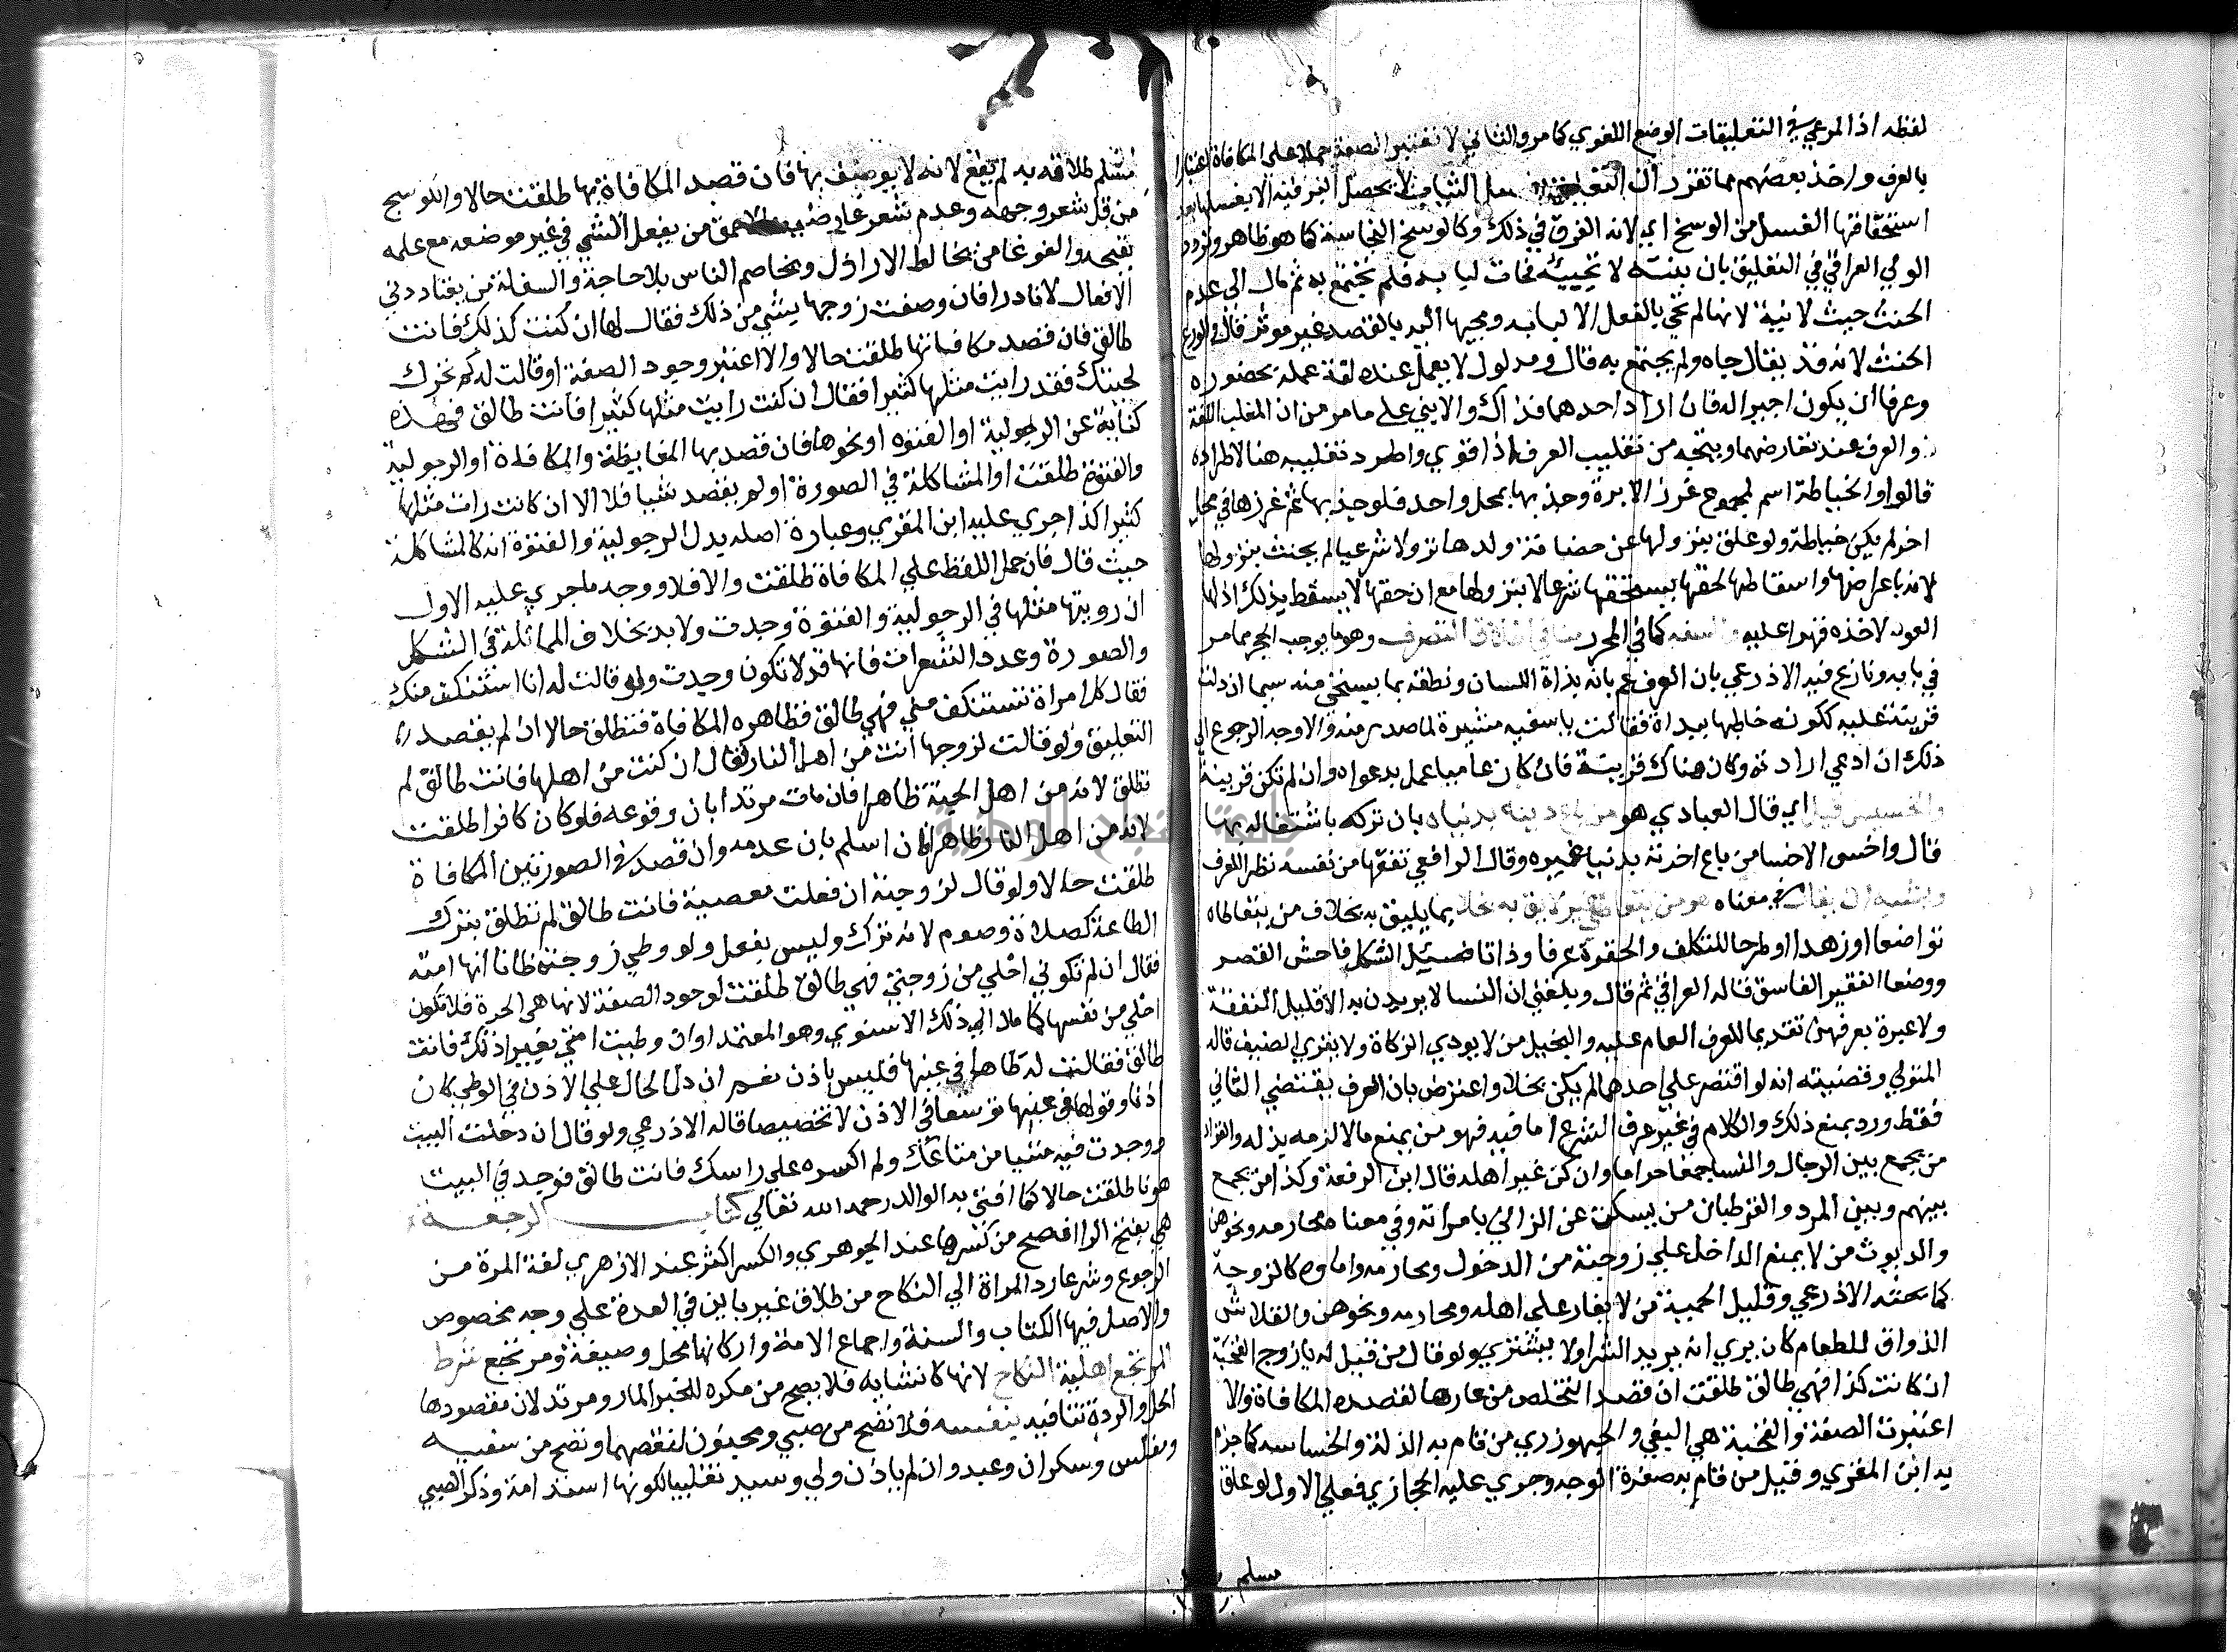 لفظه اذا المرعي في التعليقات الوضع اللغوي كما مر والثاني لا تعتبر الصفة حملا علي المكافاة اعتبارا
بالعرف واخذ بعضهم مما تقرر ان التعليق بغسل الثياب لا يحصل البر فيه الا بغسلها بعد
استحقاقها الغسل من الوسخ اي لانه العرف في ذلك وكالوسخ النجاسة كما هو ظاهر وتردد
الولي العراقي في التعليق بان بنته لا تجييه فجات لبابه فلم تجتمع به ثم مال الي عدم
الحنث حيث لا نية لانها لم تجي بالفعل الا لبابه ومجيها اليه بالقصد غير موثر قال والورع
الحنث لانه قد يقال جاه ولم يجتمع به قال ومدلول لا يعمل عنده لغة عمله بحضوره
وعرفا ان يكون اجيرا له فان اراد احدهما فذاك والا يبني علي ما مر من ان المغلب اللغة
والعرف عند تعارضهما ويتجه من تغليب العرف اذا قوي واطرد تغليبه هنا لاطراده
قالوا والخياطة اسم لمجموع غرز الابرة وجذبها بمحل واحد فلو جذبها ثم غرزها في محل
اخر لم يكن خياطة ولو علق بنزولها عن حضانة ولدها نزولا شرعيا لم يحنث بنزولها
لانه باعراضها واسقاطها لحقها يستحقها شرعا لا بنزولها مع ان حقها لا يسقط بذلك اذ لها
العود لاخذه قهرا عليه والسفه كما في المحرر منافي اطلاق التصرف وهو ما يوجب الحجر مما مر
في بابه ونازع فيه الاذرعي بان العرف عم بانه بذاة اللسان ونطقه بما يستحي منه سيما ان دلت
قرينة عليه ككونه خاطبها ببذاة فقالت يا سفيه مشيرة لما صدر منه والاوجه الرجوع الي
ذلك ان ادعي ارادته وكان هناك قرينة فان كان عاميا عمل بدعواه وان لم تكن قرينة
والخسيس قيل اي قال العبادي هو من باع دينه بدنياه بان تركه باشتغاله بها
قال واخس الاخسا من باع اخرته بدنيا غيره وقال الرافعي تفقها من نفسه نظر اللعرف
ويشبه ان يقال في معناه هو من يتعاطي غير لايق به بخلا بما يليق به بخلاف من يتعاطاه
تواضعا او زهدا او طرحا للتكلف والحقرة عرفا وذاتا ضييل الشكل فاحش القصر
ووضعا الفقير الفاسق قاله العراقي ثم قال وبلغني ان النسا لا يريدن به الا قليل النفقة
ولا عبرة بعرفهن تقديما للعرف العام عليه والبخيل من لا يودي الزكاة ولا يقري الضيف قاله
المتولي وقضيته انه لو اقتصر علي احدهما لم يكن بخلا واعترض بان العرف يقتضي الثاني
فقط ورد بمنع ذلك والكلام في غير عرف الشرع اما فيه فهو من يمنع مالا لزمه بذله والقواد
من يجمع بين الرجال والنسا جمعا حراما وان كن غير اهله قال ابن الرفعة وكذا من يجمع
بينهم وبين المرد والقرطبان من يسكت عن الزاني بامراته وفي معناه محارمه ونحوهن
والديوث من لا يمنع الداخل علي زوجته من الدخول ومحارمه واماوه كالزوجة
كما بحثه الاذرعي وقليل الحمية من لا يغار علي اهله ومحارمه ونحوهن والقلاش
الذواق للطعام كان يري انه يريد الشرا ولا يشتري ولو قال من قيل له يا زوج القحبة
ان كانت كذا فهي طالق طلقت ان قصد التخلص من عارها لقصده المكافاة والا
اعتبرت الصفة والقحبة هي البغي والجهوذري من قام به الذلة والخساسه كما جزم
به ابن المقري وقيل من قام به صفرة الوجه وجري عليه الحجازي فعلي الاول لو علق
مسلم
مسلم طلاقه به لم يقع لانه لا يوصف بها فان قصد المكافاة بها طلقت حالا والكوسج
من قل شعر وجهه وعدم شعر عارضيه والاحمق من يفعل الشي في غير موضعه مع علمه
بقبحه والغوغا من يخالط الاراذل ويخاصم الناس بلا حاجة والسفلة من يعتاد دني
الافعال لا نادرا فان وصفت زوجها بشي من ذلك فقال لها ان كنت كذلك فانت
طالق فان قصد مكافاتها طلقت حالا والا اعتبر وجود الصفة او قالت له كم تحرك
لحيتك فقد رايت مثلها كثيرا فقال ان كنت رايت مثلها كثيرا فانت طالق فهذه
كناية عن الرجولية او الفتوه او نحوها فان قصد بها المغايظة والمكافاة او الرجولية
والفتوة طلقت او المشاكلة في الصورة او لم يقصد شيا فلا الا ان كانت رات مثلها
كثيرا كذا جري عليه ابن المقري وعبارة اصله بدل الرجولية والفتوة انه كالمشاكلة
حيث قال فان حمل اللفظ علي المكافاة طلقت والا فلا ووجه ما جري عليه الاول
ان رويتها مثلها في الرجولية والفتوة وجدت ولا بد بخلاف المماثلة في الشكل
والصورة وعدد الشعرات فانها قد لا تكون وجدت ولو قالت له انا استنكف منك
فقال كل امراة تستنكف مني فهي طالق فظاهره المكافاة فتطلق حالا ان لم يقصد
التعليق ولو قالت لزوجها انت من اهل النار فقال ان كنت من اهلها فانت طالق لم
تطلق لانه من اهل الجنة ظاهرا فان مات مرتدا بان وقوعه فلو كان كافرا طلقت
لانه من اهل النار ظاهرا فان اسلم بان عدمه وان قصد في الصورتين المكافاة
طلقت حالا ولو قال لزوجته ان فعلت معصية فانت طالق لم تطلق بترك
الطاعة كصلاة وصوم لانه ترك وليس بفعل ولو وطي زوجته ظانا انها امته
فقال ان لم تكوني احلي من زوجتي فهي طالق طلقت لوجود الصفة لانها هي الحرة فلا تكون
احلي من نفسها كما مال الي ذلك الاسنوي وهو المعتمد او ان وطيت امتي بغير اذنك فانت
طالق فقالت له طاها في عينها فليس باذن نعم ان دل الحال علي الاذن في الوطي كان
اذنا وقولها في عينها توسعا في الاذن لا تخصيصا قاله الاذرعي ولو قال ان دخلت البيت
ووجدت فيه شيا من متاعك ولم اكسره علي راسك فانت طالق فوجد في البيت
هونا طلقت حالا كما افتي به الوالد رحمه الله تعالي كتاب الرجعة
هي بفتح الرا افصح من كسرها عند الجوهري والكسر اكثر عند الازهري لغة المرة من
الرجوع وشرعا رد المراة الي النكاح من طلاق غير باين في العدة علي وجه مخصوص
والاصل فيها الكتاب والسنة واجماع الامة واركانها محل وصيغة ومرتجع شرط
المرتجع اهلية النكاح لانها كانشايه فلا يصح من مكره للخبر المار ومرتد لان مقصودها
الحل والردة تنافيه بنفسه فلا تصح من صبي ومجنون لنقصهما وتصح من سفيه
ومفلس وسكران وعبد وان لم ياذن ولي وسيد تغليبا لكونها استدامة وذكر الصبي